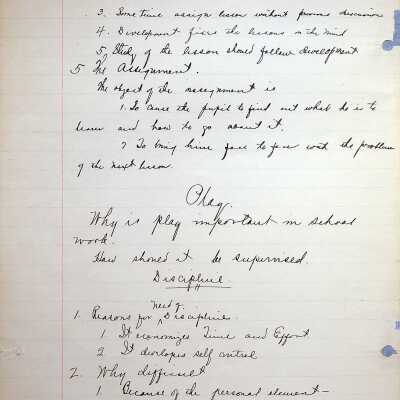 3. Some time assign lesson without previous discussion
4. Development fixes the lessons in the mind
5. Study of the lesson should follow development
5 The Assignment.
The object of the assignment is
1. To cause the pupil to find out what he is to
learn and how to go about it.
2 To bring him face to face with the problem
of the next lesson
Play.
Why is play important in school
work.
How should it be supervised.
Discipline.
1. Reasons for need of Discipline
1 It economizes Time and Effort
2 It developes self control
2. Why difficult
1. Because of the personal element—